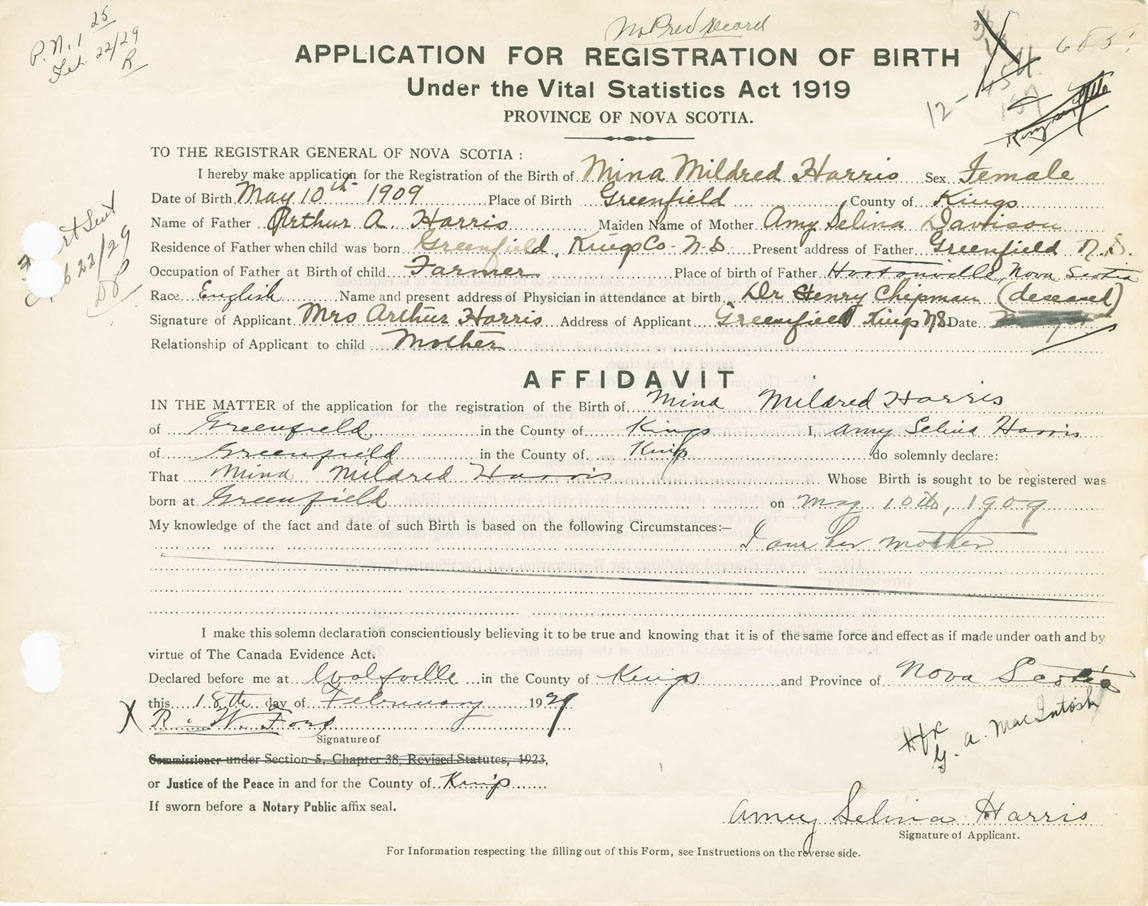 No Prev record
P.N. 1 25
Feb 22/29
R
685
APPLICATION FOR REGISTRATION OF BIRTH
Under the Vital Statistics Act 1919
12 - 454
PROVINCE OF NOVA SCOTIA.
TO THE REGISTRAR GENERAL OF NOVA SCOTIA :
I hereby make application for the Registration of the Birth of Mina Mildred Harris Sex Female
Date of Birth May 10th 1909 Place of Birth Greenfield County of Kings
Name of Father Arthur A. Harris Maiden Name of Mother Amy Selina Davison
Residence of Father when child was born Greenfield, Kings Co. N.S. Present address of Father Greenfield N.S.
Occupation of Father at Birth of child Farmer Place of birth of Father Hortonville, Nova Scotia
Race English Name and present address of Physician in attendance at birth Dr Henry Chipman (deseased)
Signature of Applicant Mrs Arthur Harris Address of Applicant Greenfield Kings N.S. Date
Relationship of Applicant to child Mother
Sent
22/29
AFFIDAVIT
IN THE MATTER of the application for the registration of the Birth of Mina Mildred Harris
of Greenfield in the County of Kings I, Amy Selina Harris
of Greenfield in the County of Kings do solemnly declare:
That Mina Mildred Harris Whose Birth is sought to be registered was
born at Greenfield on May 10th, 1909
My knowledge of the fact and date of such Birth is based on the following Circumstances:—
I am her mother
I make this solemn declaration conscientiously believing it to be true and knowing that it is of the same force and effect as if made under oath and by
virtue of The Canada Evidence Act.
Declared before me at Wolfville in the County of Kings and Province of Nova Scotia
this 18th day of February 1929
X R. W. Ford
Signature of
Commissioner under Section 5, Chapter 38, Revised Statutes, 1923,
or Justice of the Peace in and for the County of King's
If sworn before a Notary Public affix seal.
Hfx
G. A. MacIntosh
Amy Selina Harris
Signature of Applicant.
For Information respecting the filling out of this Form, see Instructions on the reverse side.